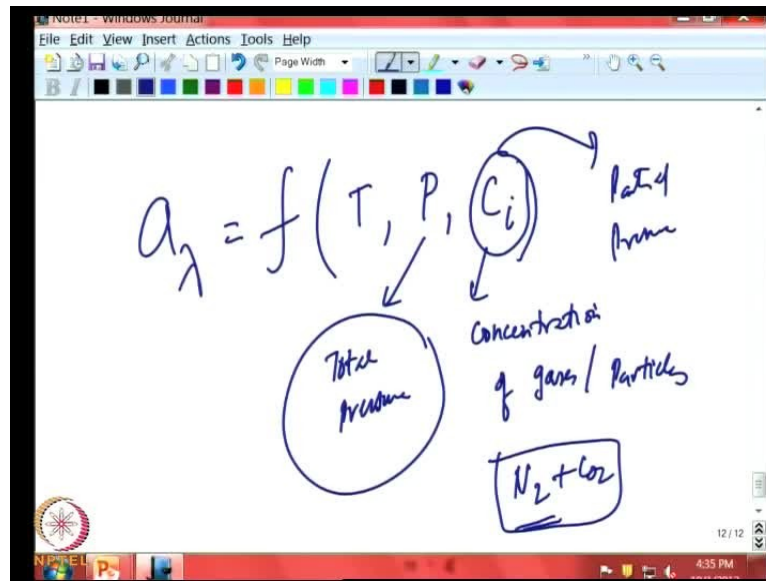 Note1 - Windows Journal
File Edit View Insert Actions Tools Help
Page Width
B I
a_λ = f(T, P, C_i)
Partial
Pressure
Total
pressure
Concentration
of gases / Particles
N₂ + CO₂
12 / 12
NPTEL
4:35 PM